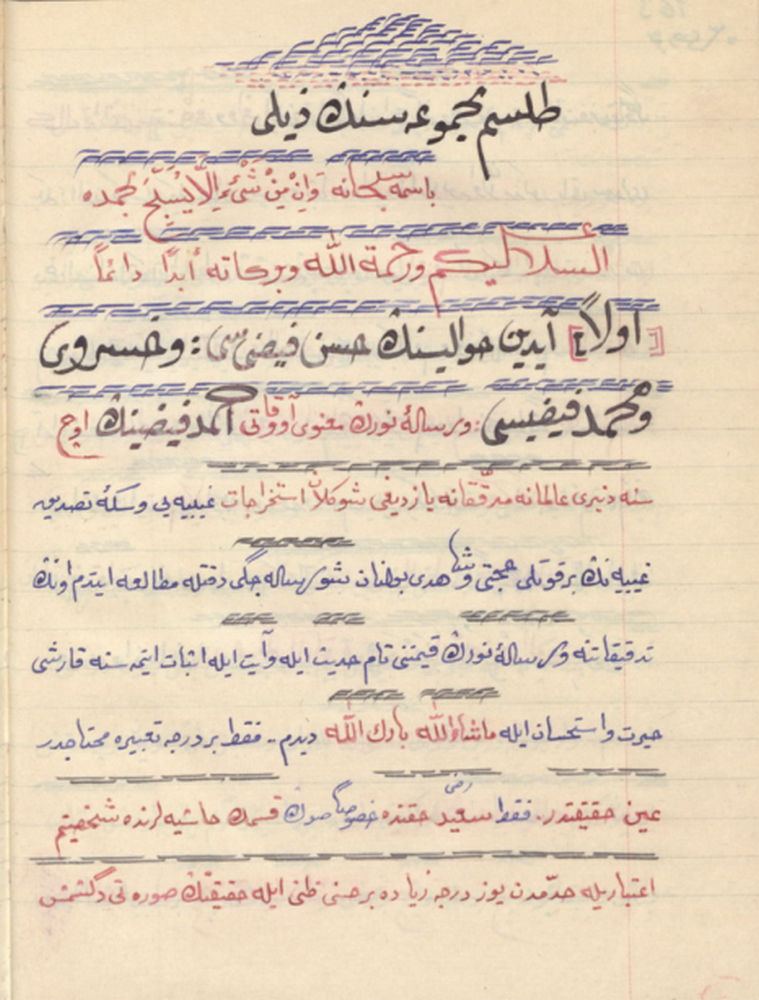 طلسم مجموعه سنڭ ذيلى
باسمه سبحانه وَاِنْ مِنْ شَىْءٍ اِلَّا يُسَبِّحُ بِحَمْدِه
السلام عليكم ورحمة اللّٰه وبركاته أبدًا دائماً
[اولاً] آيدين حواليسنڭ حسن فيضى سى: وخسروى
ومحمد فيضيسى: ورسالهٔ نورڭ معنوى آووقاتى احمد فيضينڭ اوچ
سنه دنبرى عالمانه مدقّقانه يازديغى شو كلان استخراجات غيبيه يى وسكهٔ تصديق
غيبيه نڭ بر قوتلى حجتى وشاهدى بولنان شو رساله جگى دقتله مطالعه ايتدم اونڭ
تدقيقاتنه ورسالهٔ نورڭ قيمتنى تام حديث ايله وآيت ايله اثبات ايتمه سنه قارشى
حيرت واستحسان ايله ماشاءاللّٰه بارك اللّٰه ديدم.. فقط بر درجه تعبيره محتاجدر
عين حقيقتدر. فقط سعيد رضى حقنده خصوصا صوڭ قسمڭ حاشيه لرنده شخصيتم
اعتباريله حدّمدن يوز درجه زياده بر حسنى ظنى ايله حقيقتڭ صورتى دگشمش